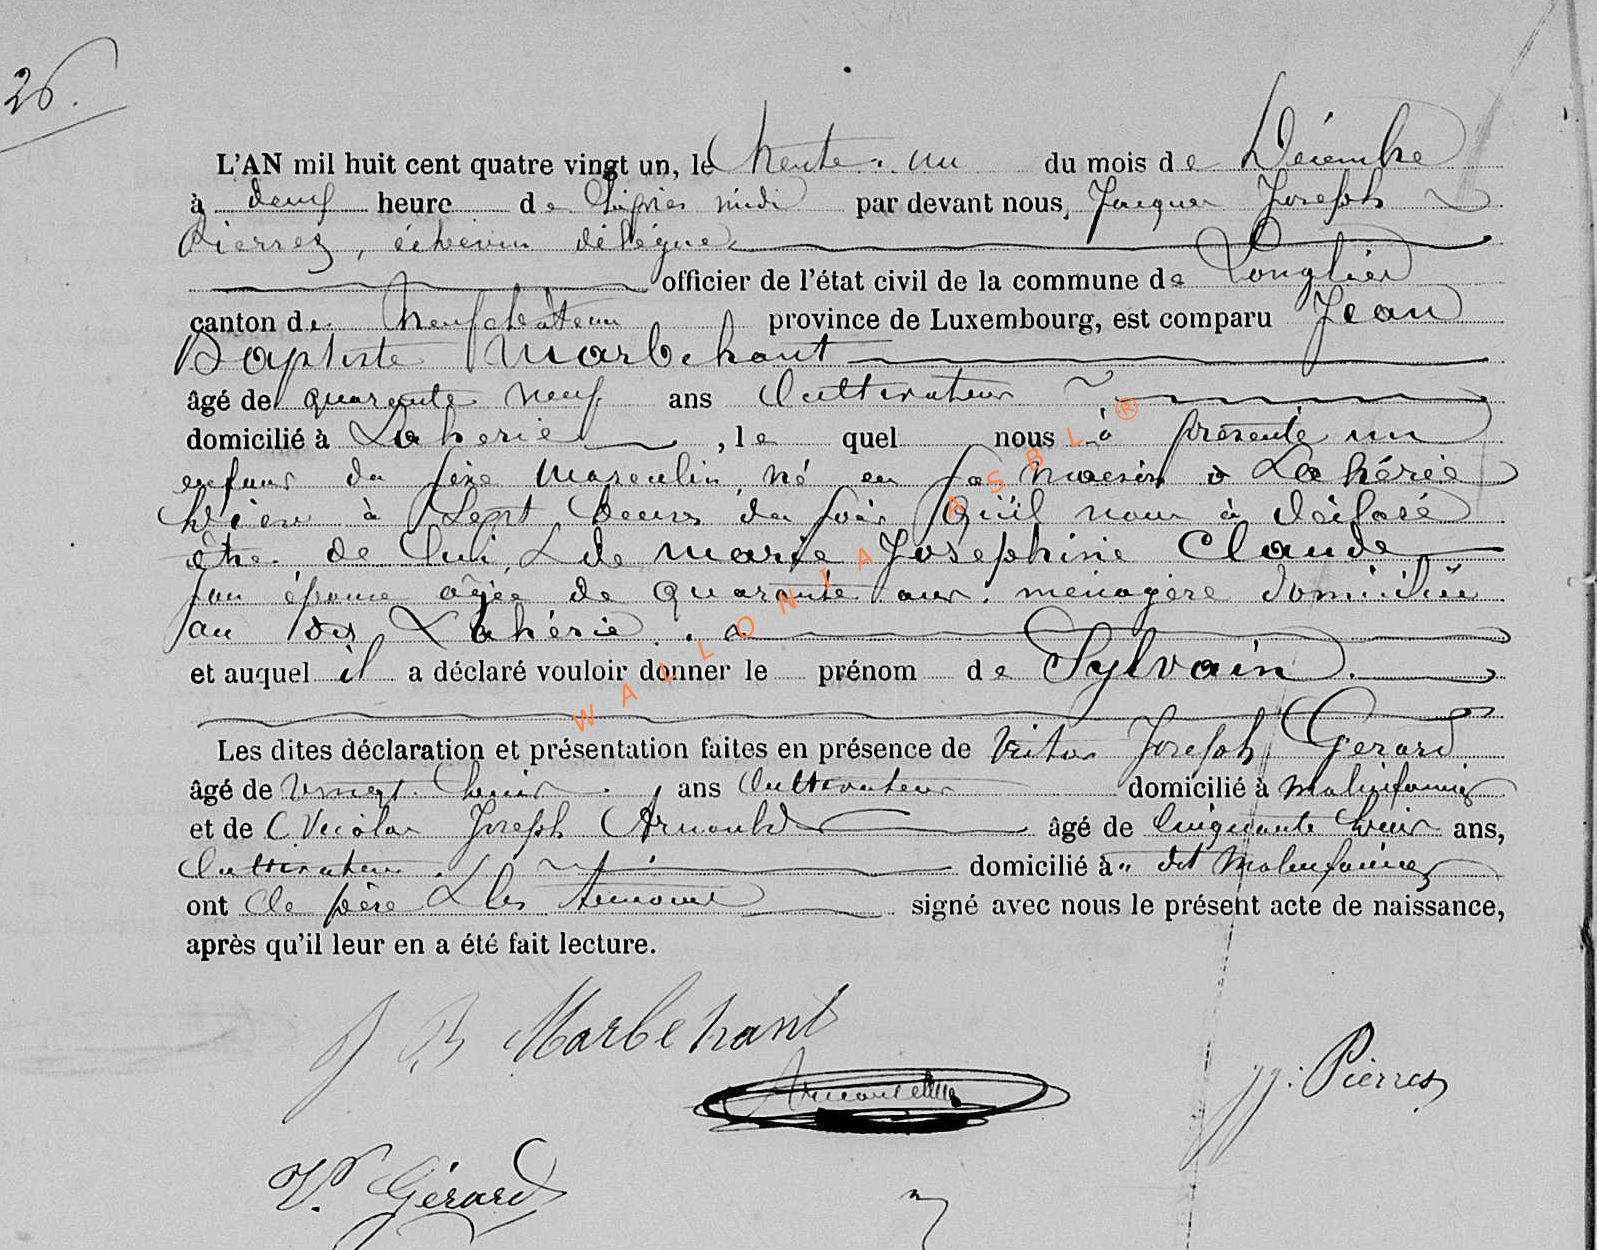 26.
L'AN mil huit cent quatre vingt un, le trente-un du mois de Décembre
à deux heure de l'après midi par devant nous, Jacques Joseph
Pierres, échevin délégué
officier de l'état civil de la commune de Longlier
canton de Neufchâteau province de Luxembourg, est comparu Jean
Baptiste Marbehant
âgé de quarante neuf ans Cultivateur
domicilié à Lahérie, le quel nous à présenté un
enfant du sexe Masculin, né en sa maison à Lahérie
hier à Sept heures du soir qu'il nous à déclaré
être de lui & de Marie Joséphine Claude
son épouse âgée de quarante ans ménagère domiciliée
au dit Lahérie.
et auquel il a déclaré vouloir donner le prénom de Sylvain.
Les dites déclaration et présentation faites en présence de Victor Joseph Gerard
âgé de vingt huit ans Cultivateur domicilié à Molinfaing
et de Nicolas Joseph Arnould âgé de Cinquante huit ans,
Cultivateur domicilié à dit Molinfaing
ont le père & les témoins signé avec nous le présent acte de naissance,
après qu'il leur en a été fait lecture.
J B Marbehant
JJ. Pierres
V. Gérard
WALLONIA ASBL ®